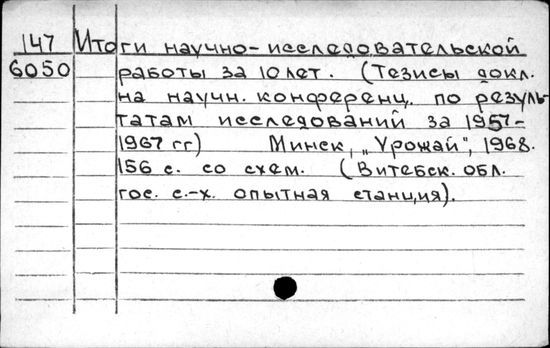 147 Итоги научно-исследовательской
6050 работы за 10 лет. (Тезисы докл.
на научн. конференц. по резуль-
татам исследований за 1957-
1967 гг) Минск, „Урожай", 1968.
156 с. со схем. (Витебск. обл.
гос. с.-х. опытная станция).